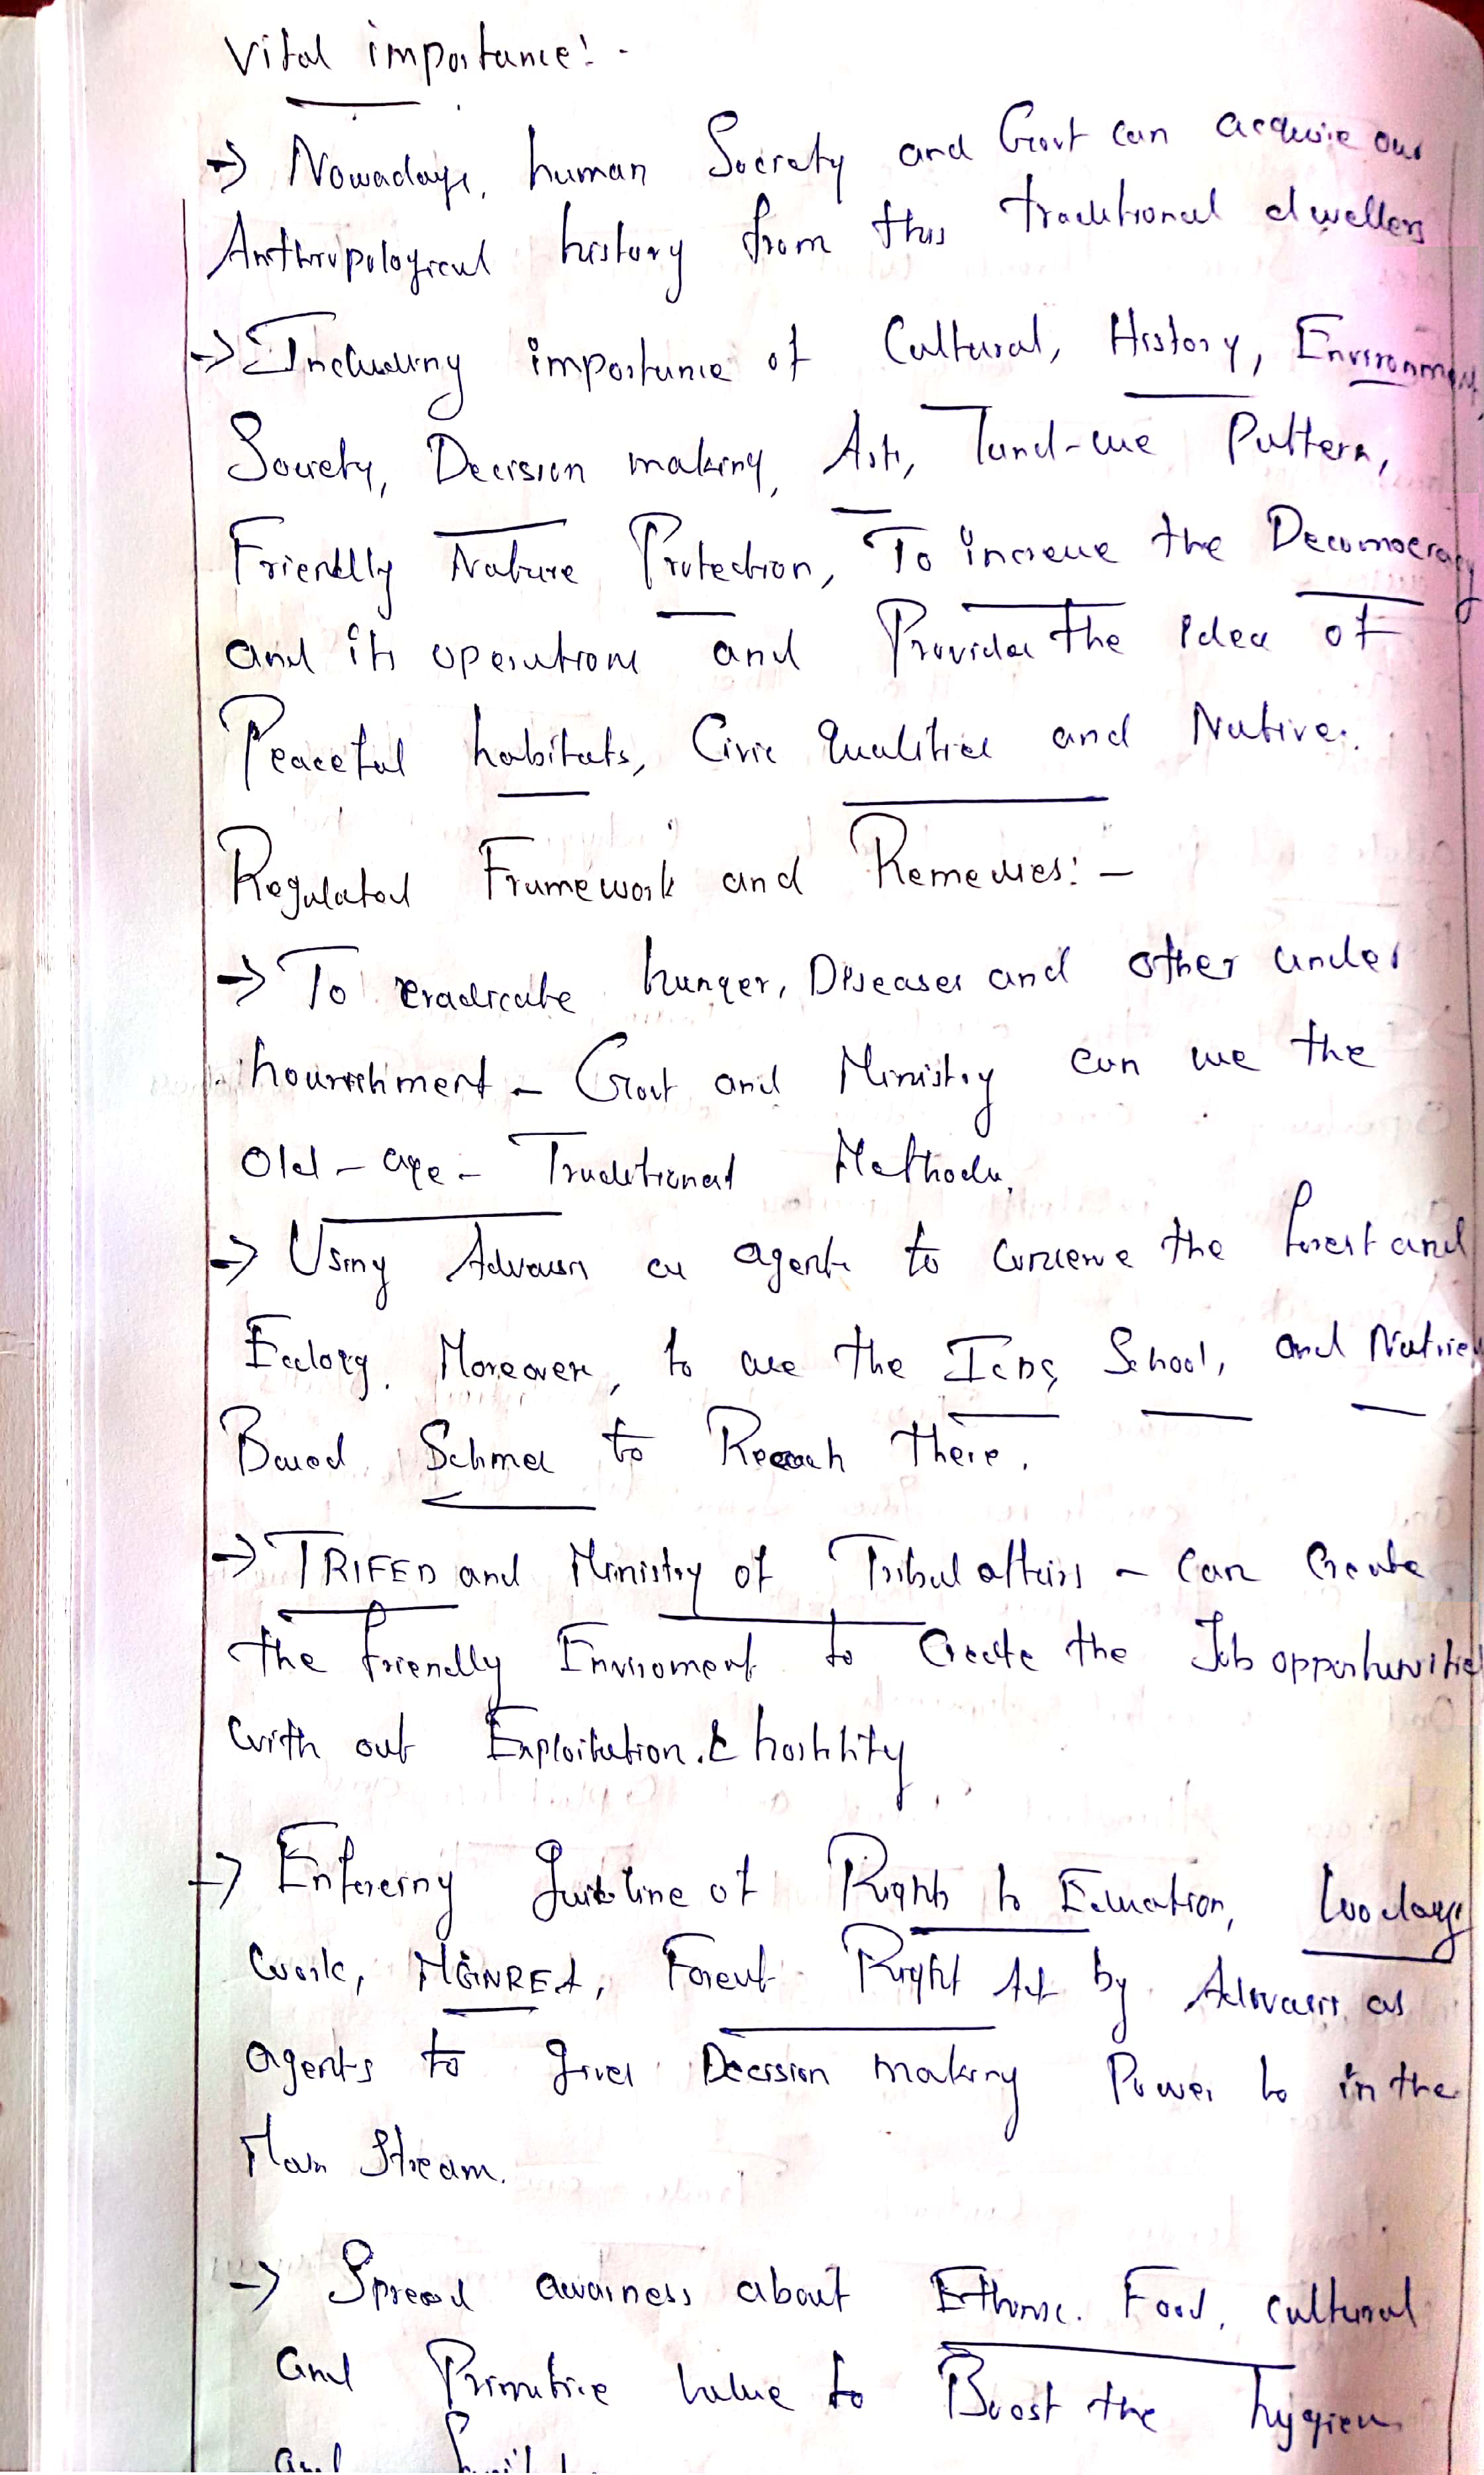 Vital importance: -
→ Nowadays, human Society and Govt can acquire our
Anthropological history from this traditional dwellers
→ Including importance of Cultural, History, Environment,
Society, Decision making, Art, Land-use Pattern,
Friendly Nature Protection, To increase the Decomocracy
and its operations and Provides the idea of
Peaceful habitats, Civic Qualities and Native.
Regulated Framework and Remedies: -
→ To eradicate hunger, Diseases and other under
nourishment - Govt and Ministry can use the
Old - age - Traditional Methods.
→ Using Adivasi as agents to conserve the forest and
Ecology. Moreover, to use the ICDS, School, and
Based Schmes to Reach there.
→ TRIFED and Ministry of Tribal affairs - Can Create
the friendly Enviroment to Create the Job opportunities
with out Exploitation & hostility.
→ Enforcing guideline of Rights to Education, 100 days
work, MGNREA, Forest Right Act by Adivasis as
agents to gives Decision making Power to in the
Main Stream.
→ Spread awarness about Ethnic. Food, cultural
and Primitive value to Boost the hygien
and